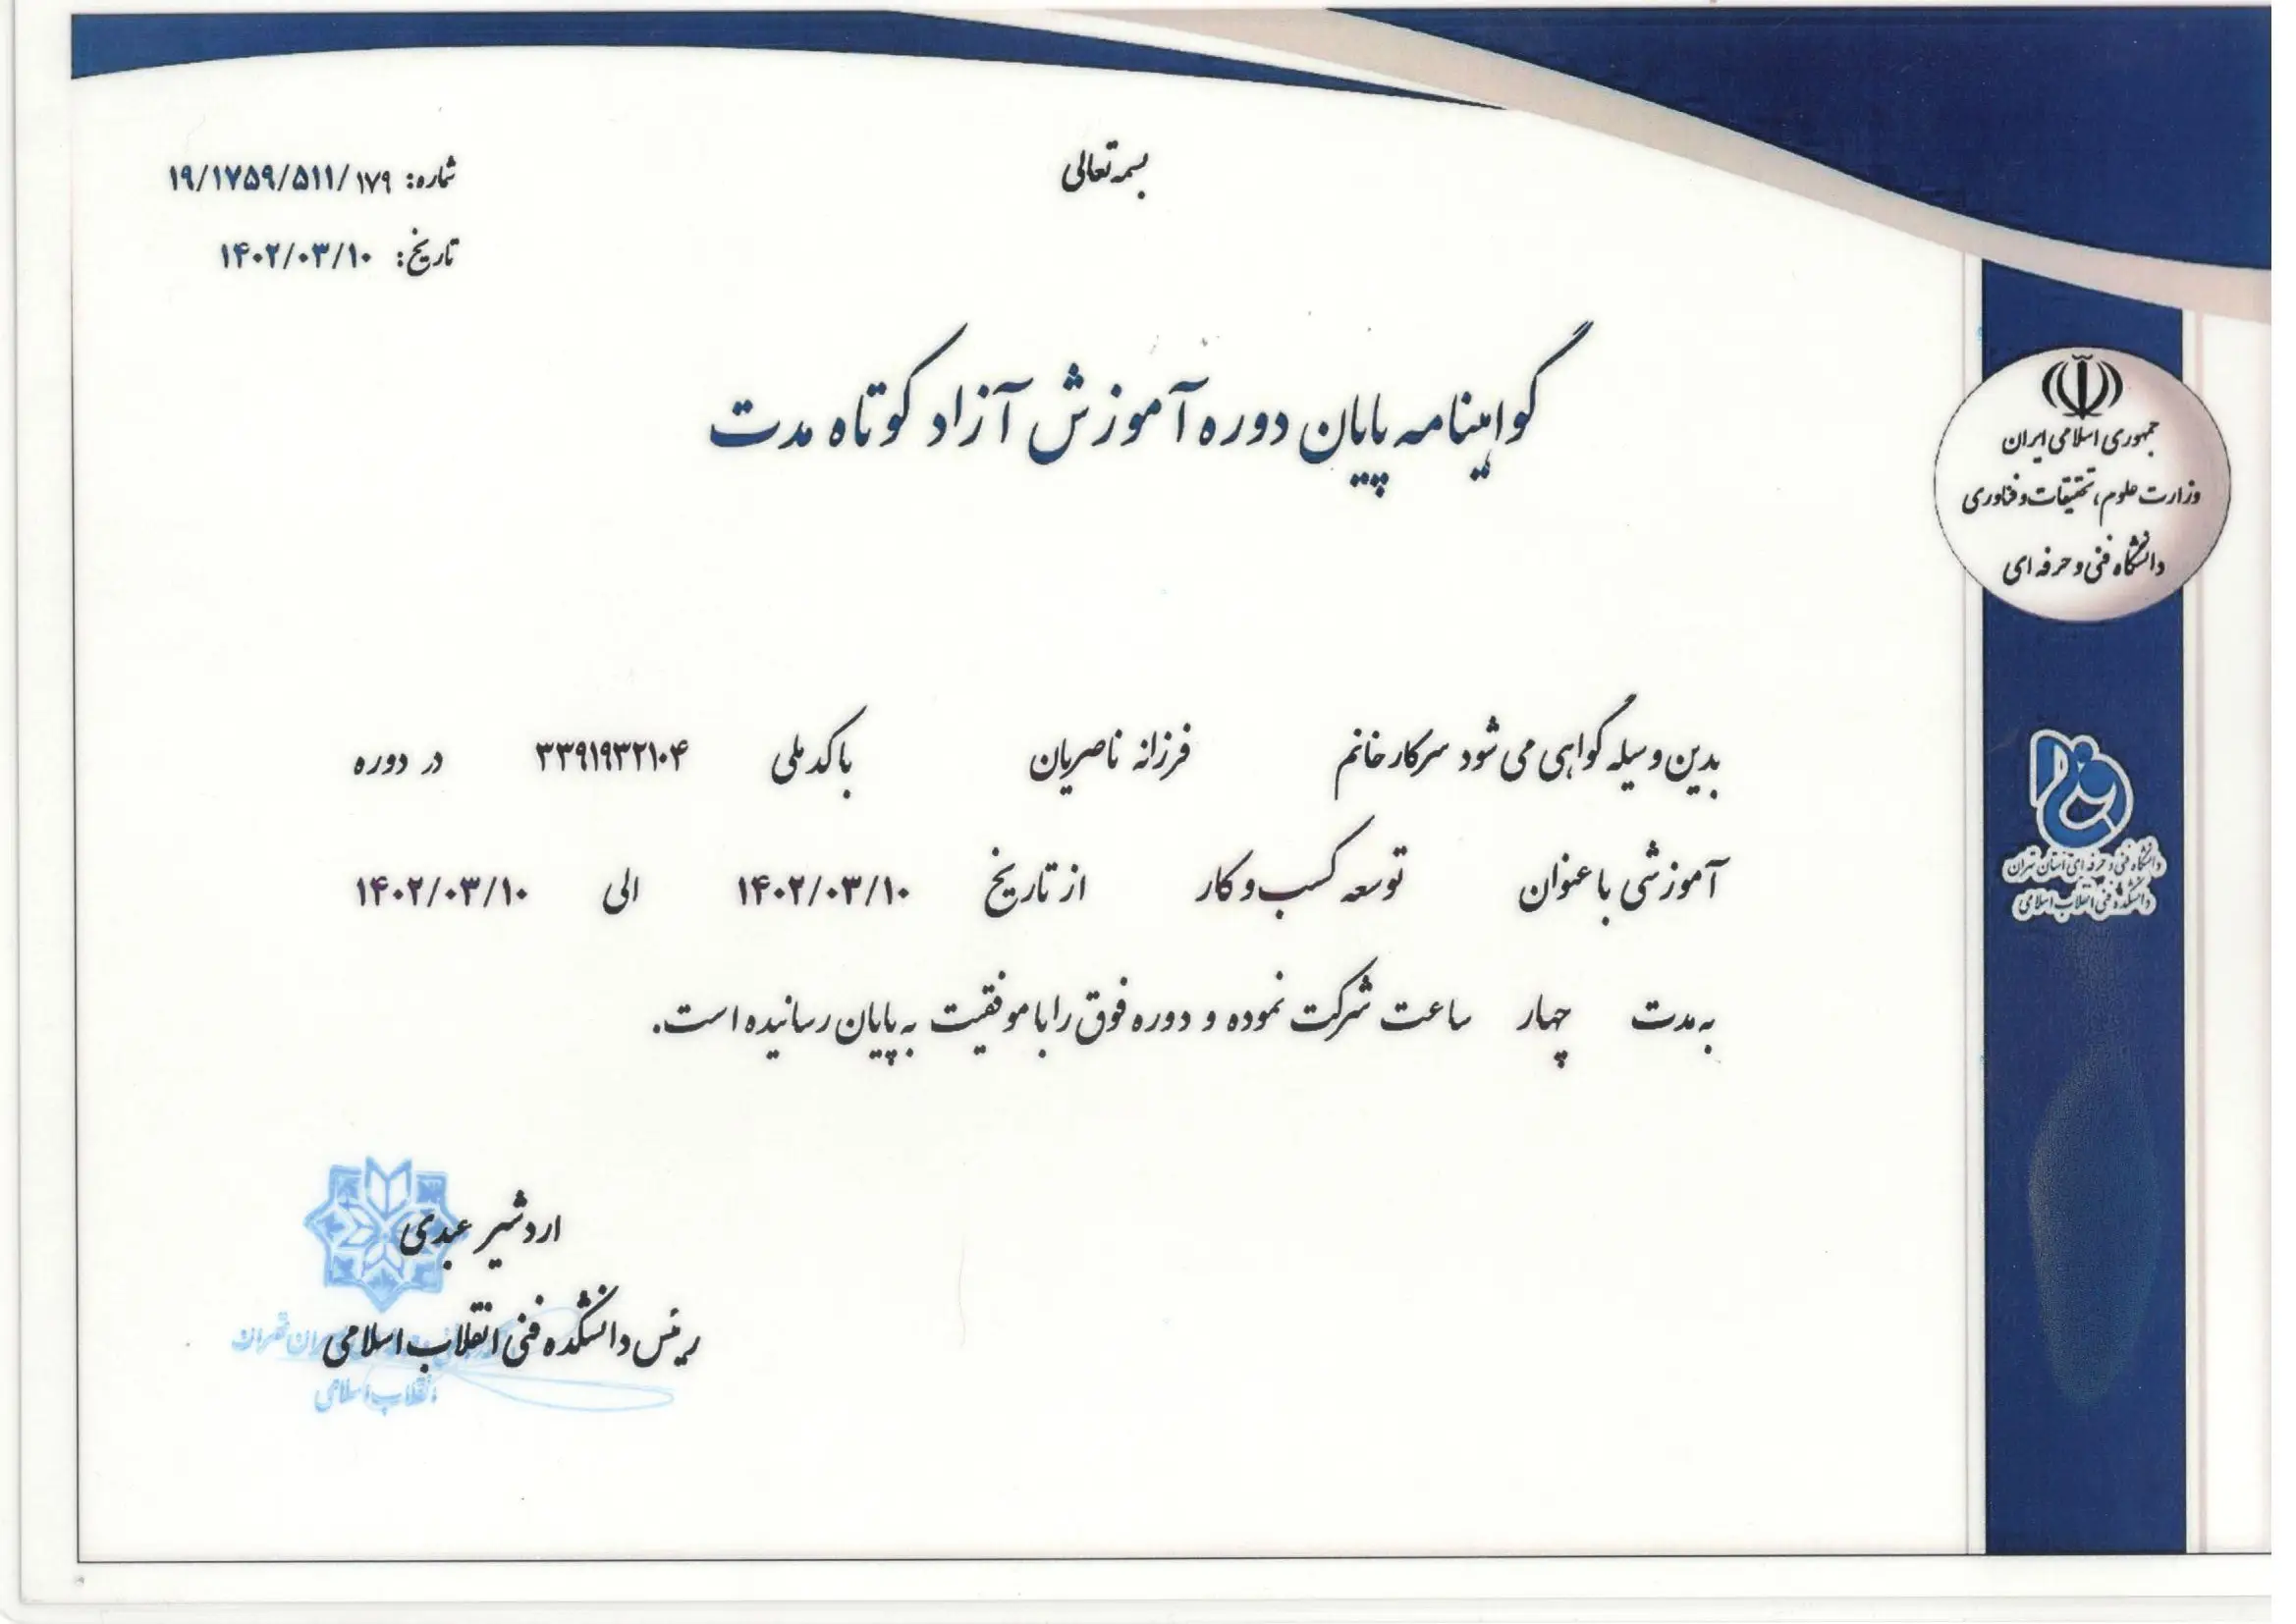 بسمه تعالی
شماره: ۱۹/۱۷۵۹/۵۱۱/۱۷۹
تاریخ: ۱۴۰۲/۰۳/۱۰
گواهینامه پایان دوره آموزش آزاد کوتاه مدت
جمهوری اسلامی ایران
وزارت علوم، تحقیقات و فناوری
دانشگاه فنی و حرفه ای
بدین وسیله گواهی می شود سرکار خانم فرزانه ناصریان با کد ملی ۳۳۹۱۹۳۲۱۰۴ در دوره
آموزشی با عنوان توسعه کسب و کار از تاریخ ۱۴۰۲/۰۳/۱۰ الی ۱۴۰۲/۰۳/۱۰
به مدت چهار ساعت شرکت نموده و دوره فوق را با موفقیت به پایان رسانیده است.
دانشگاه فنی و حرفه ای استان تهران
دانشکده فنی انقلاب اسلامی
اردشیر عبدی
رئیس دانشکده فنی انقلاب اسلامی
تهران
انقلاب اسلامی